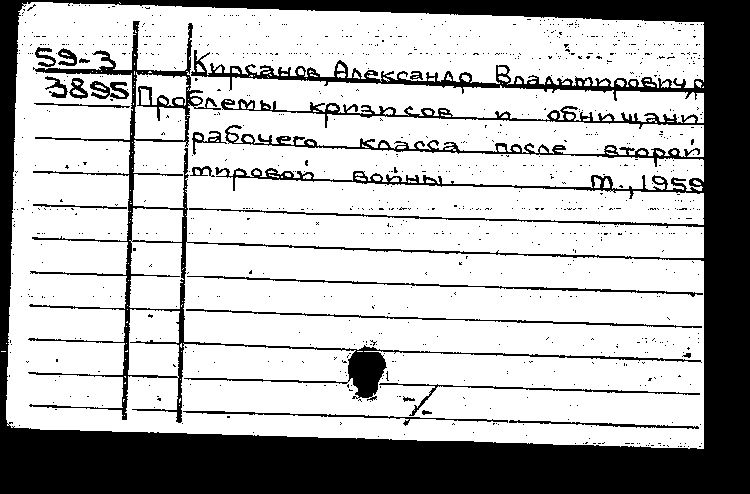 59-3 Кирсанов, Александр Владимирович,
3895 Проблемы кризисов и обнищани
рабочего класса после второй
мировой войны. М., 1959